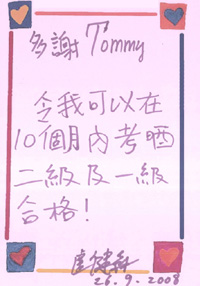 多謝 Tommy
令我可以在
10個月內考晒
二級及一級
合格!
26.9.2008